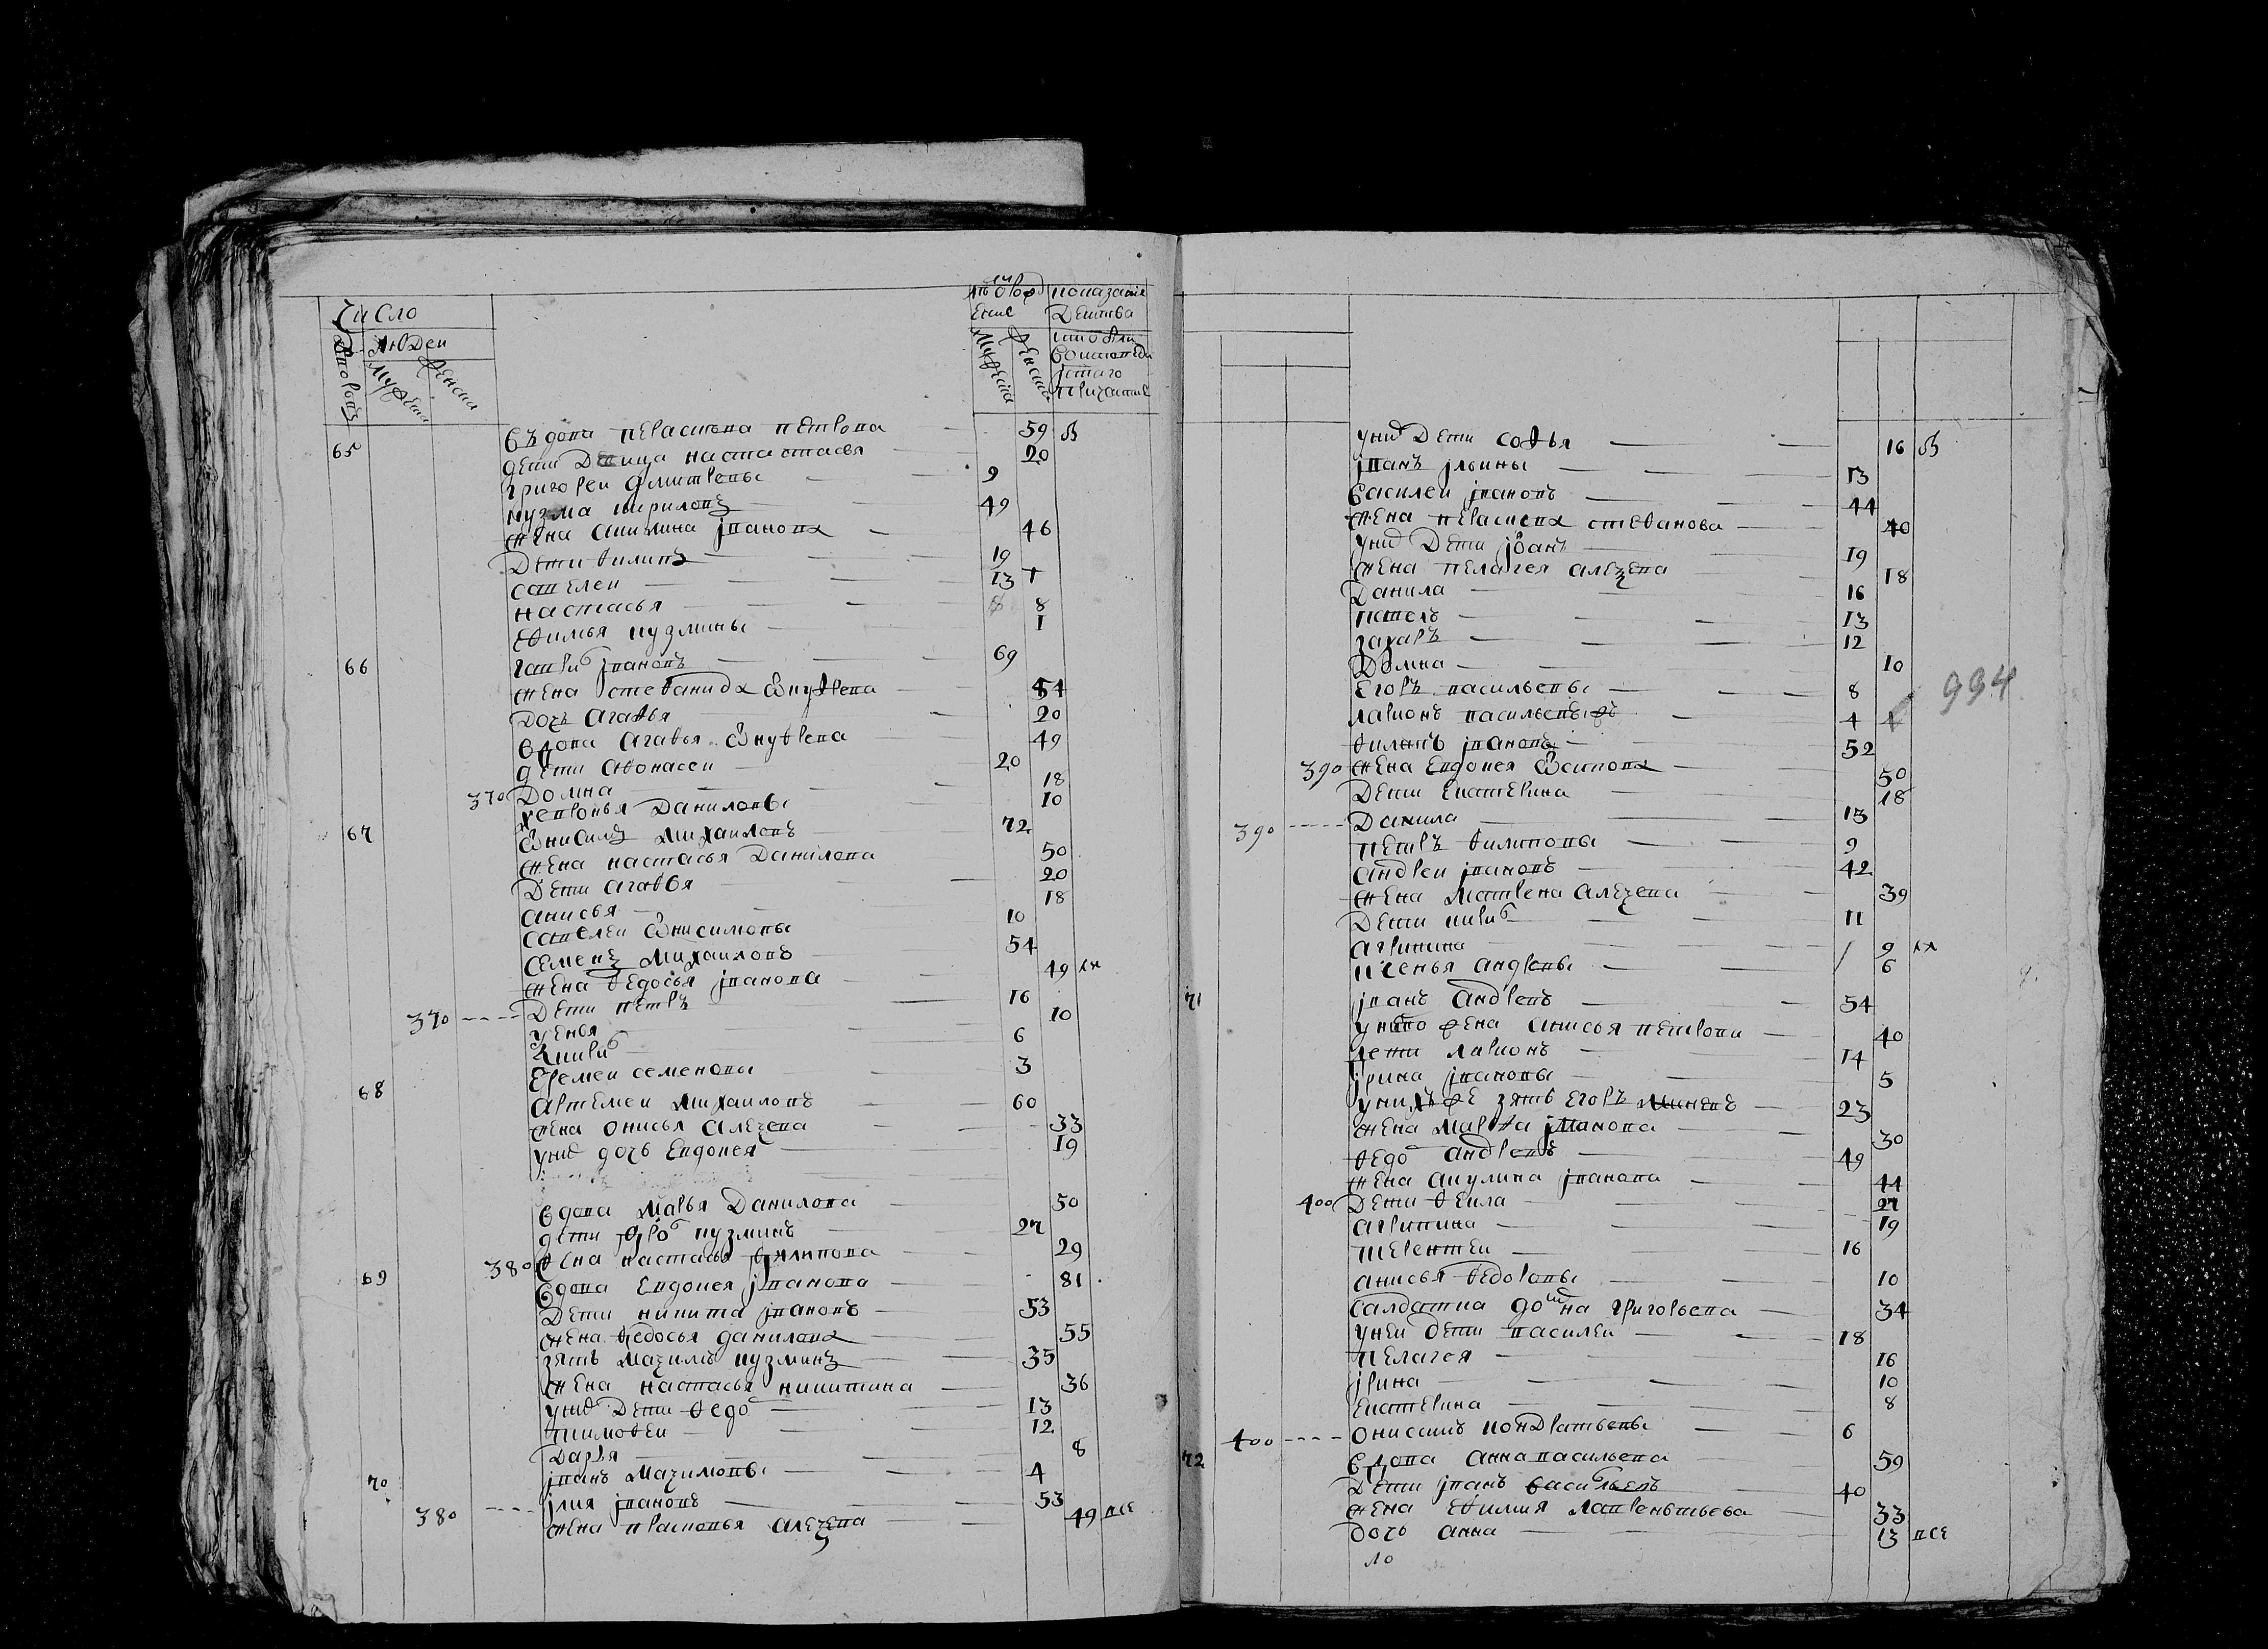 Число
Дворовъ
людеи
Мужеска
Женска
Мужеска
Женска
показание
65
въдова Парасковья Петрова — 59 в
дети девица настастасья — 20
григореи дмитревы — 9
кузма кириловъ — 49
жена акилина Iванова — 46
Дети Филипъ — 19
савелеи — 13
настасья — 8
ефимья кузмины — 1
66
гаврил Iвановъ — 69
жена стефанида Онуфрева — 54
дочь агафья — 20
вдова агафья Онуфрева — 49
дети афонасеи — 20
370 Домна — 18
хевронья Даниловы — 10
67
Онисимъ михаиловъ — 72
жена настасья Данилова — 50
Дети агафья — 20
анисья — 18
савелеи Онисимовы — 10
семенъ михаиловъ — 54
жена федосья Iванова — 49
370 ---- Дети петръ — 16
— 10
— 6
Еремеи семеновы — 3
68
артемеи михаиловъ — 60
жена онисья алексева — 33
у них дочь евдокея — 19
вдова марья Данилова — 50
дети кузминъ — 27
380 жена настасья филипова — 29
69
вдова евдокея Iванова — 81
Дети никита Iвановъ — 53
жена федосья данилова — 55
зять максимъ кузминъ — 35
жена настасья никитина — 36
у них Дети федо — 13
тимофеи — 12
Дарья — 8
Iванъ максимовы — 4
70
илия Iвановъ — 53
380 ---- жена прасковья алексева — 49 все
у них дети софья — 16 в
Iванъ ильины — 13
василеи Iвановъ — 44
жена стефанова — 40
у них Дети Iванъ — 19
жена пелагея алексева — 18
Данила — 16
павелъ — 13
захаръ — 12
Домна — 10
егоръ васильевы — 8
ларионъ — 4
934
филипъ Iвановъ — 52
390 жена евдокея Осипова — 50
Дети екатерина — 18
390 ---- Данила — 13
петръ филиповы — 9
андреи Iвановъ — 42
жена матрена алексева — 39
Дети кирил — 11
агрипина — 9
ксенья андревы — 6
71
Iванъ андревъ — 54
у ниго жена анисья петрова — 40
дети ларионъ — 14
ирина Iвановы — 5
у них же зять егоръ — 23
жена марфа Iванова — 30
федо андревъ — 49
жена акулина Iванова — 44
400 Дети фекла — 27
агрипина — 19
терентеи — 16
анисья федоровы — 10
салдатка домна григорьева — 34
у неи дети василеи — 18
пелагея — 16
ирина — 10
екатерина — 8
400 ---- онисимъ кондратьевы — 6
72
вдова анна васильева — 59
Дети Iванъ васильевъ — 40
жена ефимия лаврентьева — 33
дочь анна — 13 все
ло